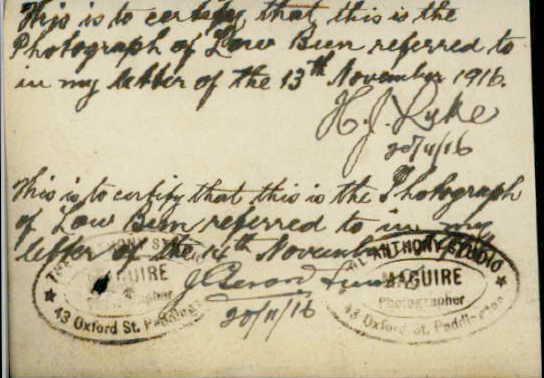 This is to certify that this is the
Photograph of Low Bun referred to
in my letter of the 13th November 1916.
H. J. Lyke
20/11/16
This is to certify that this is the Photograph
of Low Bun referred to in my
letter of the 14th November
J Gerard
20/11/16
ANTHONY STUDIO
MAGUIRE
Photographer
43 Oxford St. Paddington
THE ANTHONY STUDIO
MAGUIRE
Photographer
43 Oxford St. Paddington